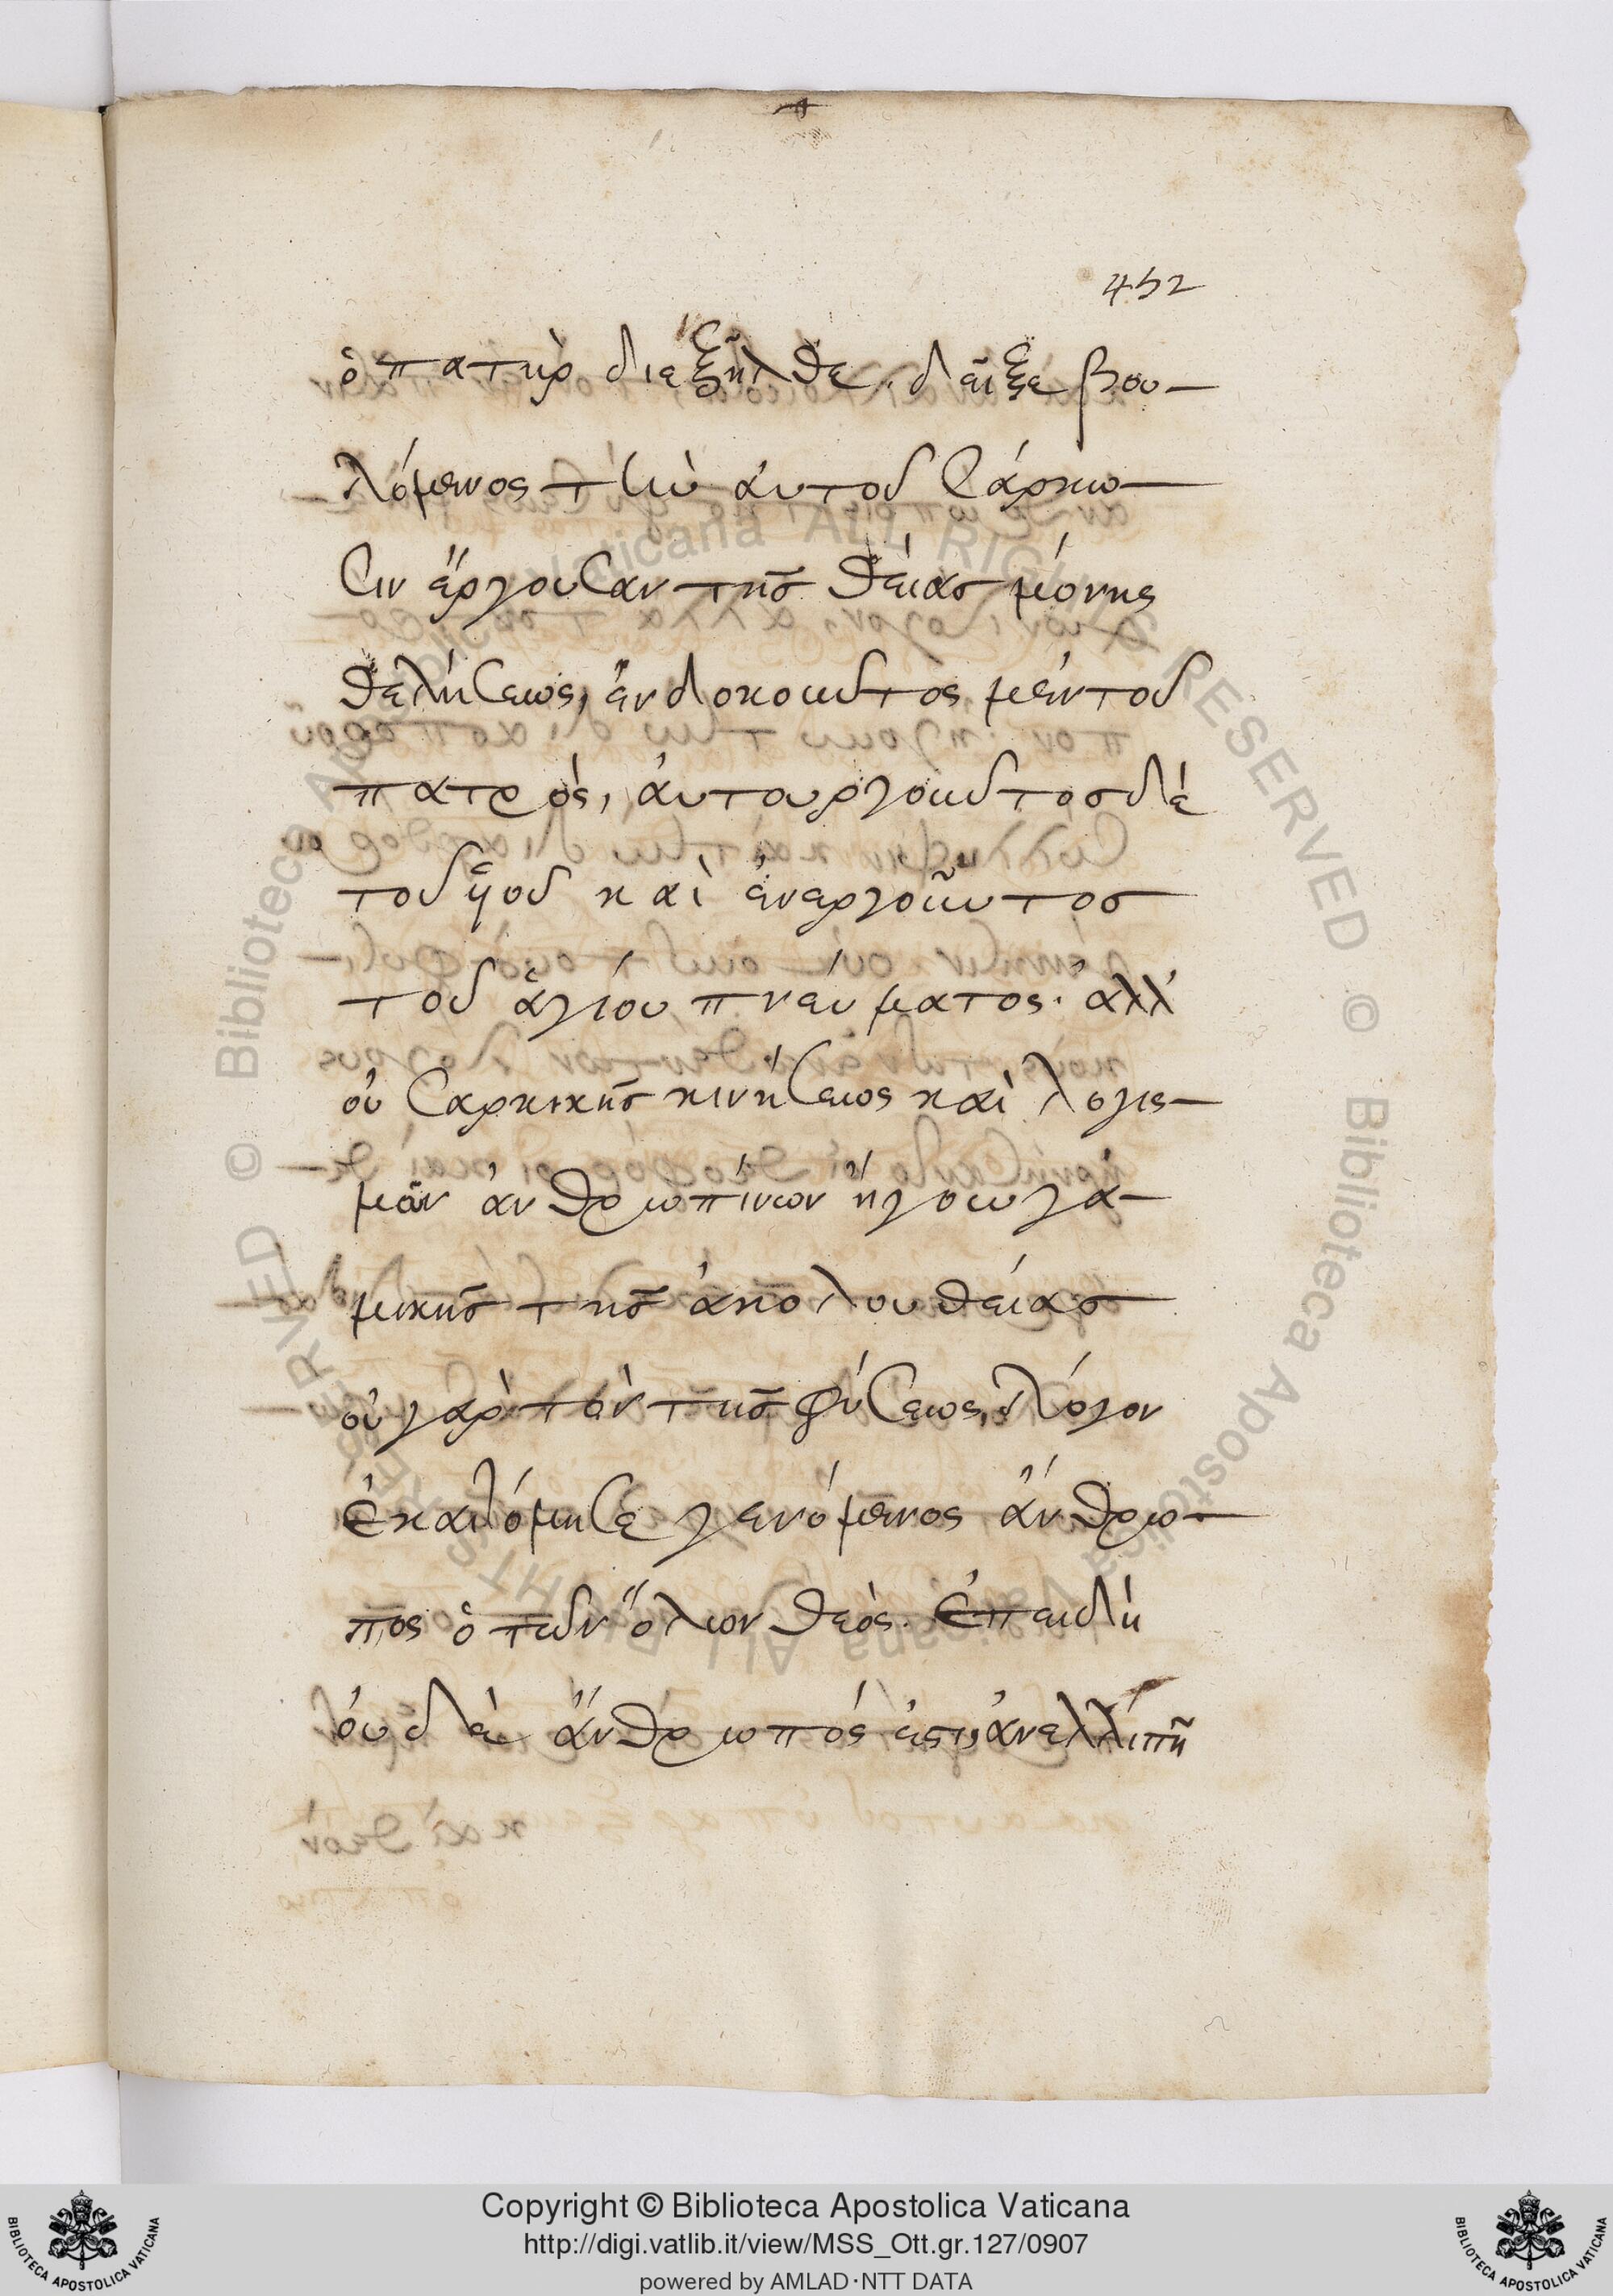 452
ὁ πατὴρ διεξῆλθε, δεῖξε βου-
λόμενος τὴν ἀυτοῦ σάρκω-
σιν ἔργουσαν τῆς θείας μόνης
θελήσεως, ἐνδοκοῦντος μὲν τοῦ
πατρὸς, ἀυτουργοῦντος δὲ
τοῦ ὑιοῦ καὶ ἐνεργοῦντος
τοῦ ἁγίου πνεύματος. ἀλλ'
οὐ σαρκικῆς κινήσεως καὶ λογισ-
μῶν ἀνθρωπίνων ἤγουν γα-
μικῆς τῆς ἀκολουθείας
οὐ γὰρ τὸν τῆς φύσεως, λόγον
ἐκαινόμησε γενόμενος ἄνθρω-
πος ὁ τῶν ὅλων θεὸς. Ἐπειδὴ
ὀυδὲ ἄνθρωπός ἐστι, ἀνελλιπῆ
Copyright © Biblioteca Apostolica Vaticana
http://digi.vatlib.it/view/MSS_Ott.gr.127/0907
powered by AMLAD·NTT DATA
BIBLIOTECA APOSTOLICA VATICANA
BIBLIOTECA APOSTOLICA VATICANA